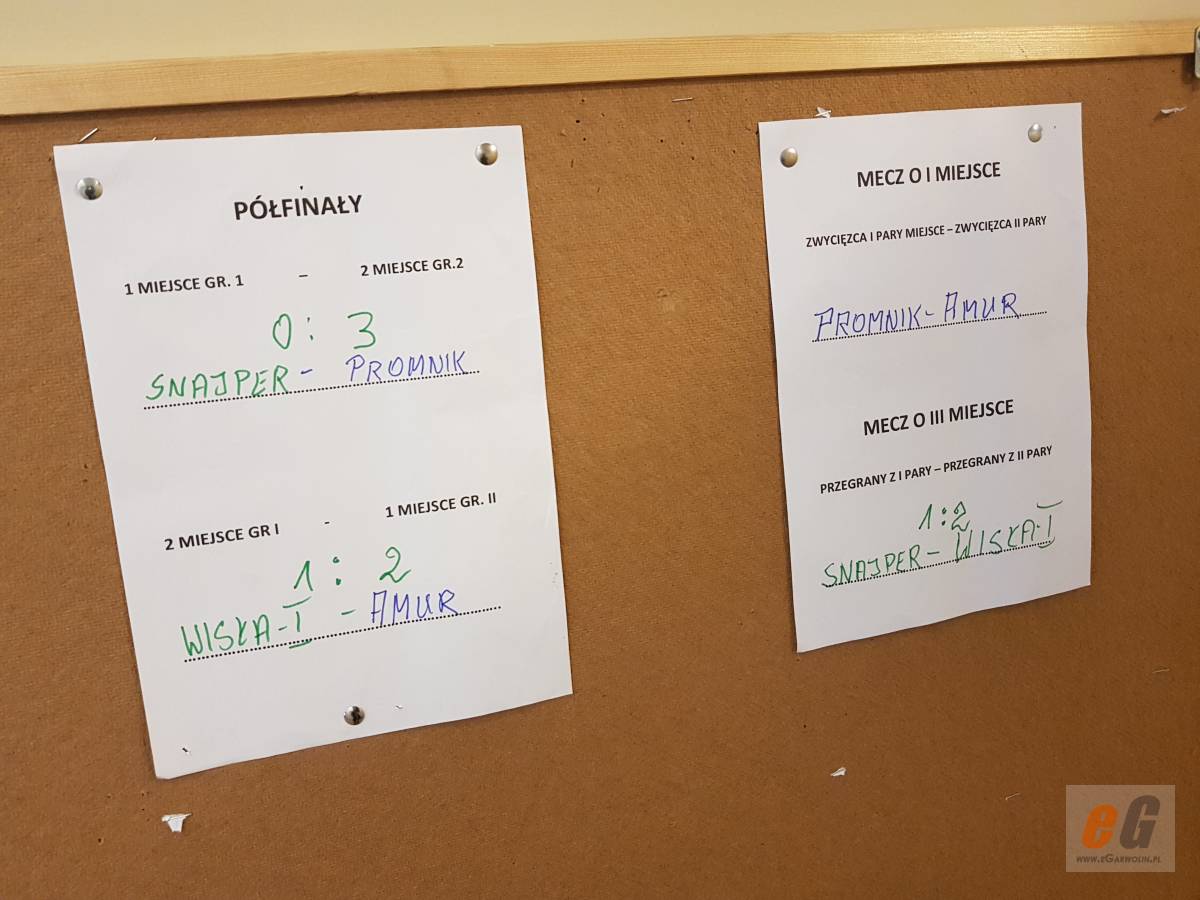 PÓŁFINAŁY
1 MIEJSCE GR. 1 – 2 MIEJSCE GR.2
0 : 3
SNAJPER - PROMNIK
2 MIEJSCE GR I - 1 MIEJSCE GR. II
1 : 2
WISŁA-I - AMUR
MECZ O I MIEJSCE
ZWYCIĘZCA I PARY MIEJSCE – ZWYCIĘZCA II PARY
PROMNIK- AMUR
MECZ O III MIEJSCE
PRZEGRANY Z I PARY – PRZEGRANY Z II PARY
1:2
SNAJPER - WISŁA-I
eG
www.eGarwolin.pl